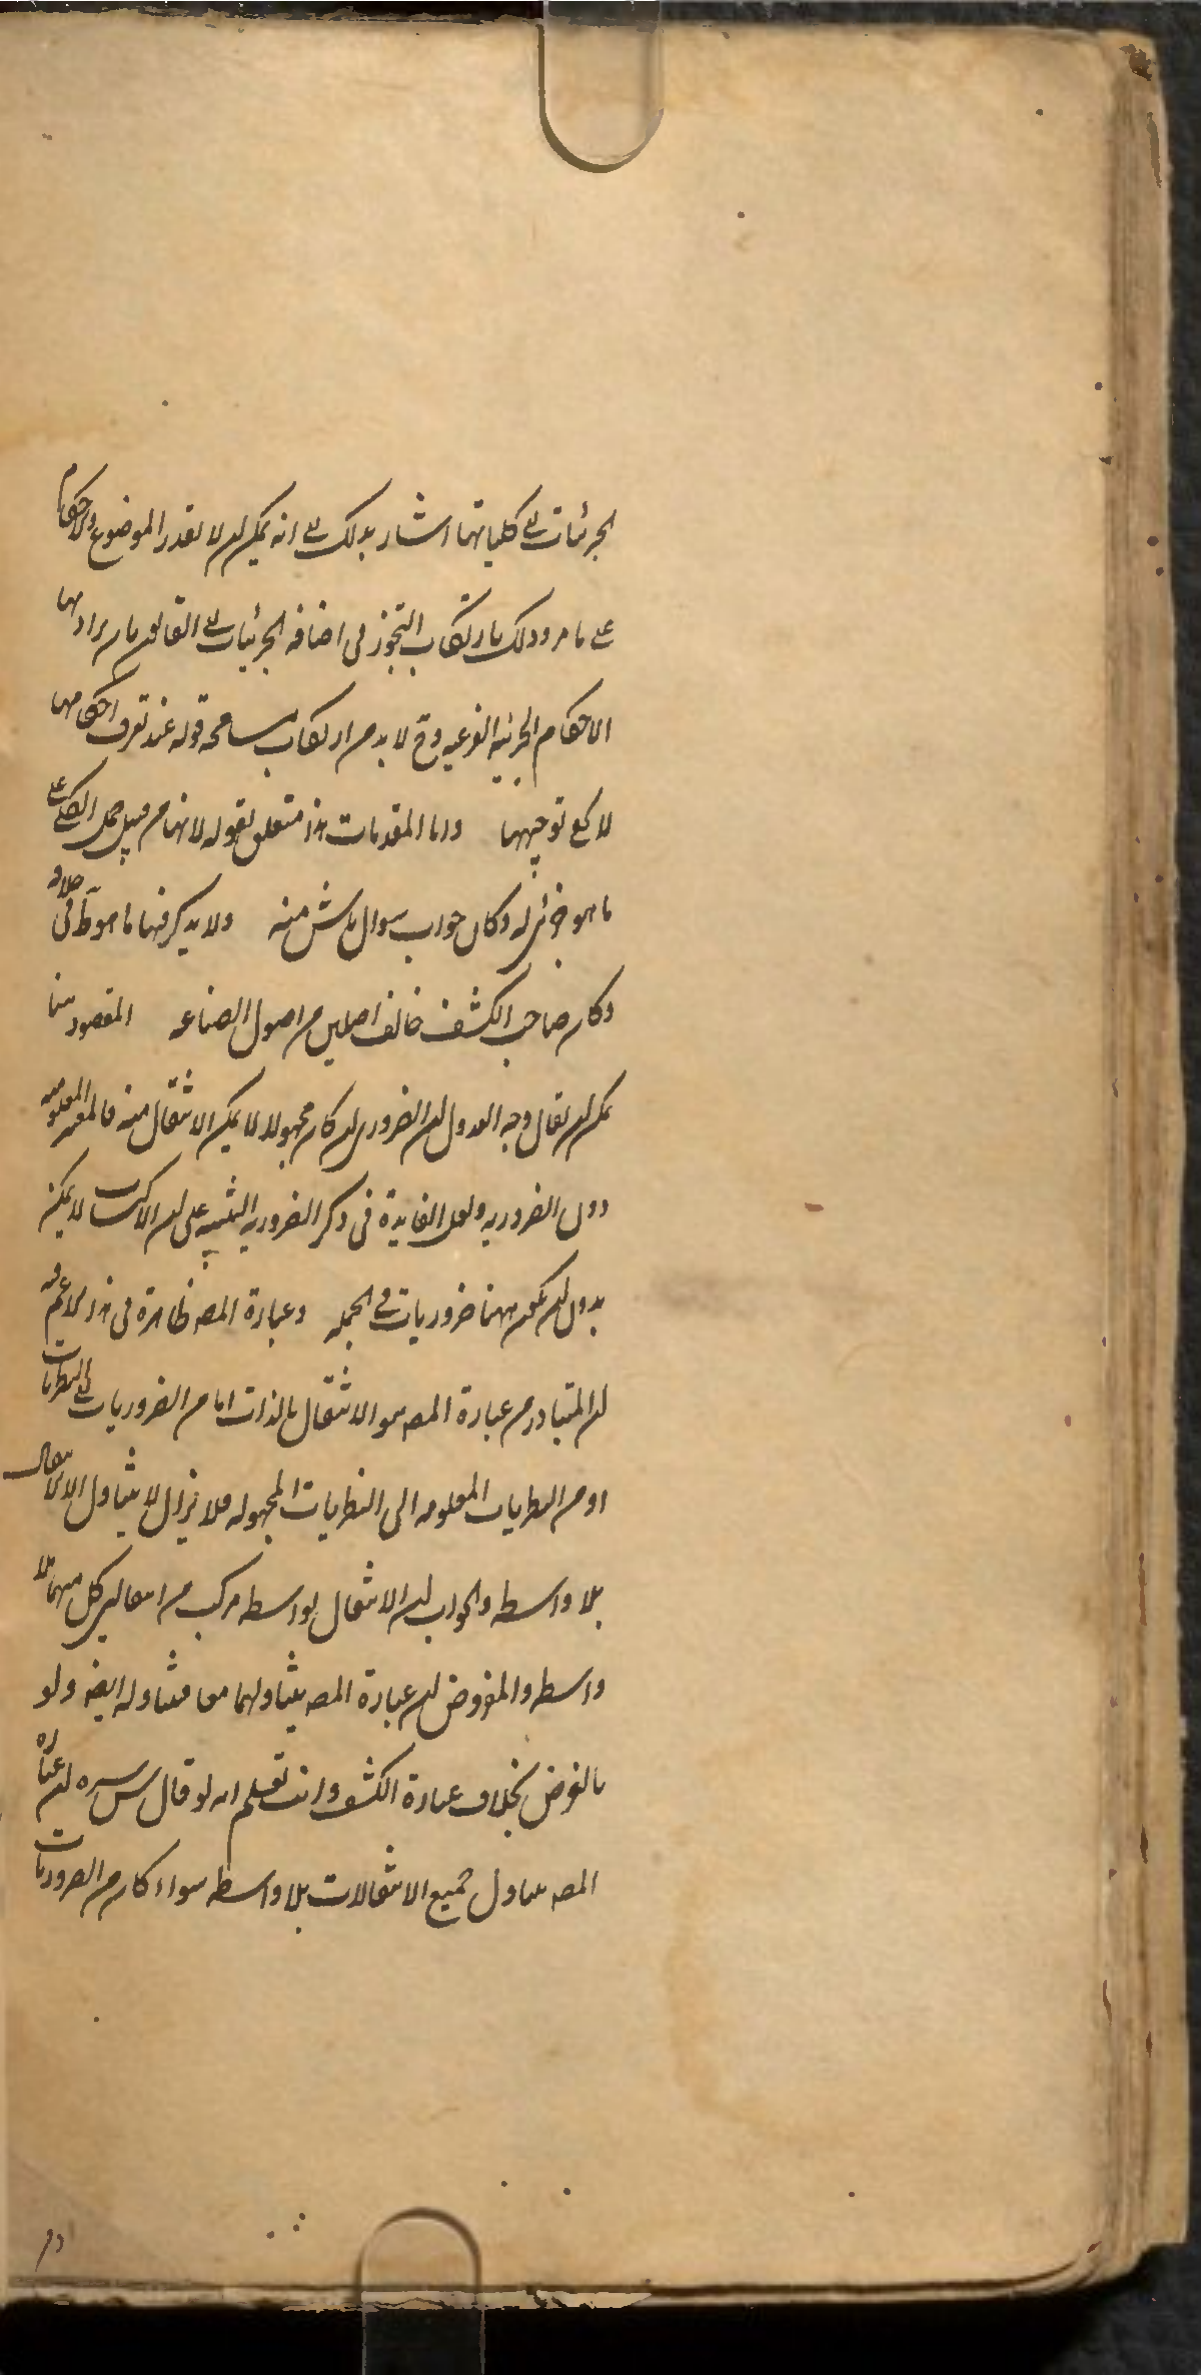 الجزئيات الى كلياتها اشار بذلك الى انه يمكن ان لا يقدر الموضوع والاحكام
على ما مر وذلك بارتكاب التجوز فى اضافه الجزئيات الى القانون بان يراد بها
الاحكام الجزئيه الفرعيه وح لا بد من ارتكاب مسامحه قوله عند تعرف احكامها
لا توجيهها واما المقدمات هذا متعلق بقوله لانها من قبيل حمل الكلى على
ما هو جزئى له وكان جواب سوال ناش منه ولا يذكر فيها ما هو
وكان صاحب الكشف خالف اصلين من اصول الصناعه المقصود هنا
يمكن ان يقال وجه العدول ان الضرورى ان كان مجهولا لا يمكن الانتقال منه فالمعتبر المعلوميه
دون الضروريه ولعل الفايدة فى ذكر الضروريه التنبيه على ان الاكتساب لا يمكن
بدون ان يكون ههنا ضروريات فى الجمله وعبارة المصـ ظاهرة فى هذا
ان المتبادر من عبارة المصـ هو الانتقال بالذات اما من الضروريات الى النظريات
او من النظريات المعلومه الى النظريات المجهوله فلا يزال لا يتناول الا الانتقال
بلا واسطه والجواب ان الانتقال بواسطه مركب من انتقالين كل منهما بلا
واسطه والمفروض ان عبارة المصـ يتناولهما معا فيتناوله ايضه ولو
بالفرض بخلاف عبارة الكشف وانت تعلم انه لو قال س سره ان عبارة
المصـ يتناول جميع الانتقالات بلا واسطه سواء كان من الضروريات